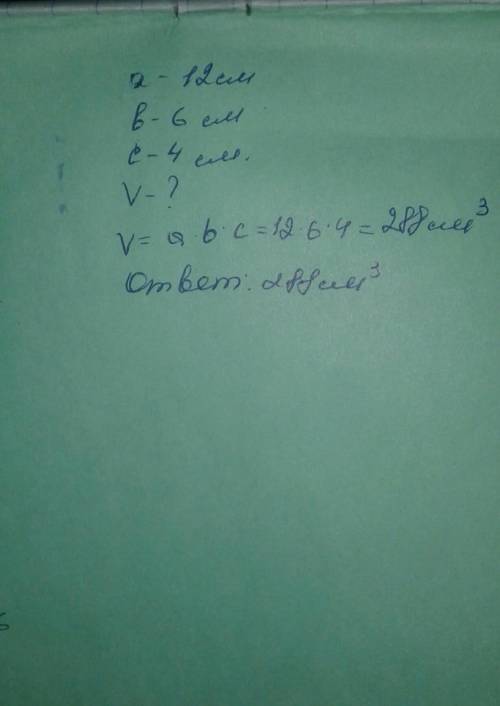 а - 12 см
в - 6 см
с - 4 см.
V - ?
V = а b · c = 12 · 6 · 4 = 288 см³
Ответ: 288 см³